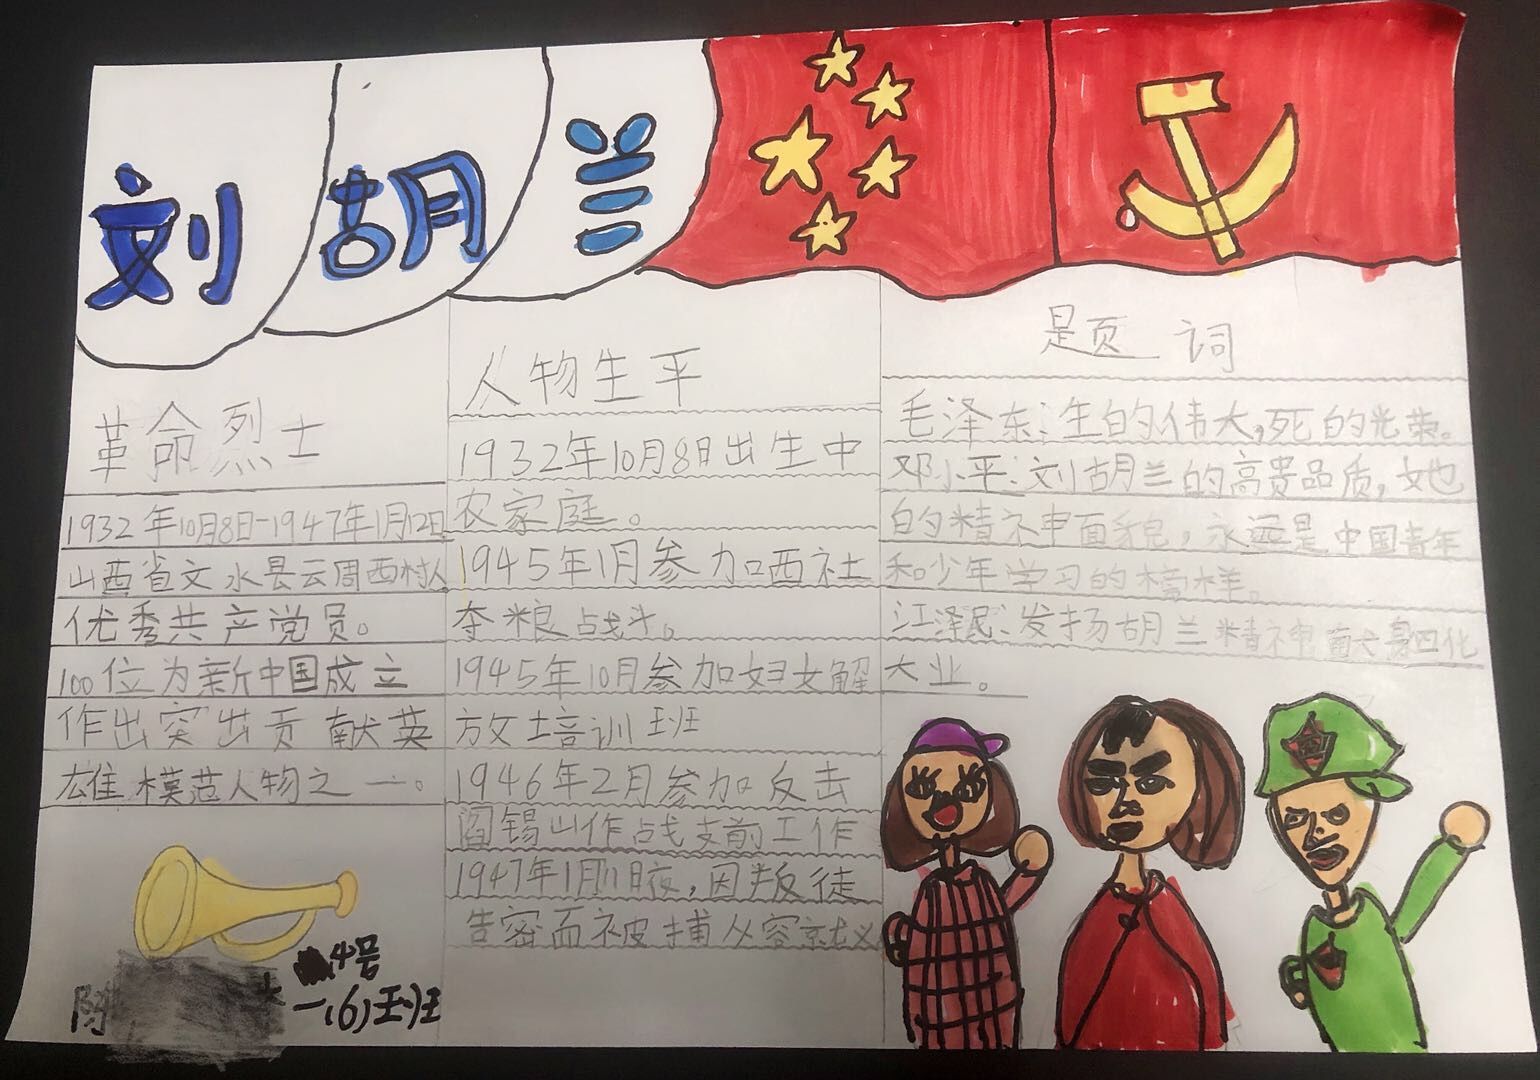 刘胡兰
革命烈士
1932年10月8日-1947年1月12日
山西省文水县云周西村人
优秀共产党员。
100位为新中国成立
作出突出贡献英
雄模范人物之一。
人物生平
1932年10月8日出生中
农家庭。
1945年1月参加西社
夺粮战斗。
1945年10月参加妇女解
放培训班
1946年2月参加反击
阎锡山作战支前工作
1947年1月11日夜，因叛徒
告密而被捕从容就义
题词
毛泽东：生的伟大，死的光荣。
邓小平：刘胡兰的高贵品质，她
的精神面貌，永远是中国青年
和少年学习的榜样。
江泽民：发扬胡兰精神献身四化
大业。
4号
陈
一(6)班